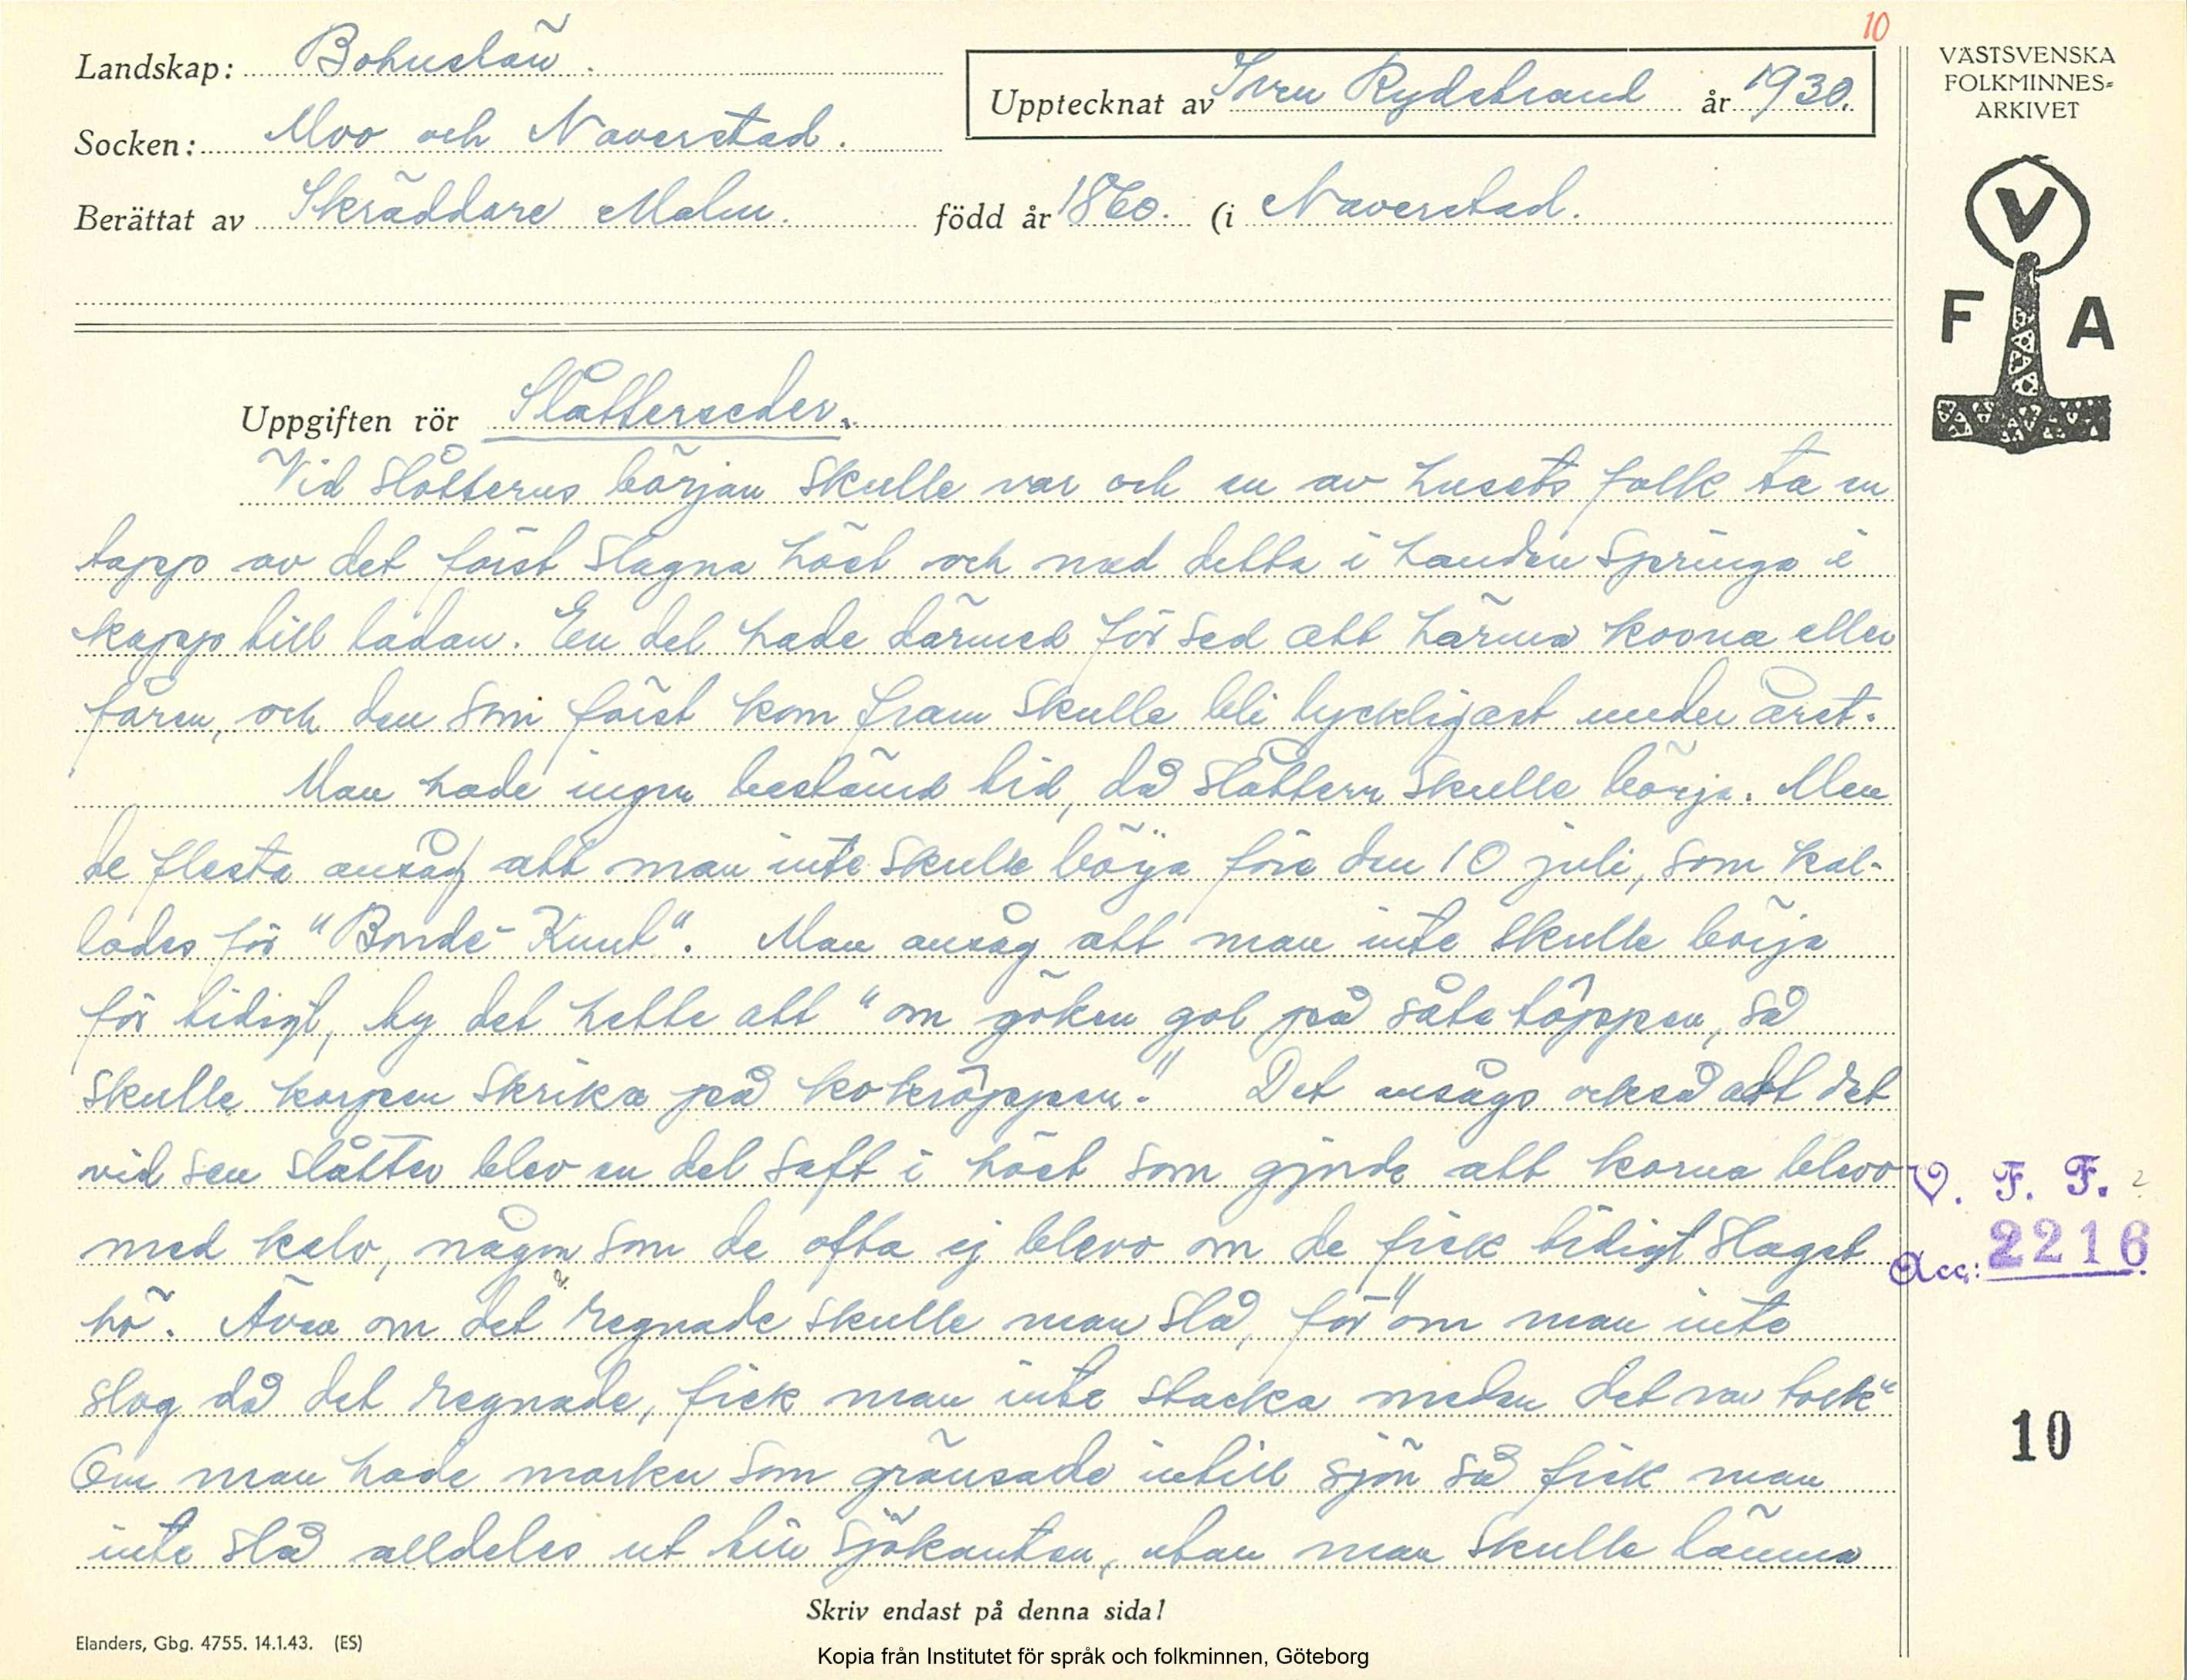 10
Landskap: Bohuslän.
VÄSTSVENSKA
FOLKMINNES=
ARKIVET
Upptecknat av Iven Rydstrand år 1930.
Socken: Moo och Naverstad.
Berättat av Skräddare Malm. född år 1860. (i Naverstad.
V
F A
Uppgiften rör Slåtterseder.
Vid slåtterns början skulle var och en av husets folk ta en
tapp av det först slagna höet och med detta i handen springa i
kapp till ladan. En del hade därmed för sed att härma korna eller
fåren, och den som först kom fram skulle bli lyckligast under året.
Man hade ingen bestämd tid, då slåttern skulle börja. Men
de flesta ansåg att man inte skulle börja före den 10 juli, som kal-
lades för "Bonde-Knut". Man ansåg att man inte skulle börja
för tidigt, ty det hette att "om göken gol på såtetöppen, så
skulle korpen skrika på kokröppen." Det ansågs också att det
vid sen slåtter blev en del saft i höet som gjorde att korna blevo
med kalv, någon som de ofta ej blevo om de fick tidigt slaget
hö. Även om det regnade skulle man slå, för "om man inte
slog då det regnade, fick man inte stacka medan det var torkt"
Om man hade marker som gränsade intill sjön så fick man
inte slå alldeles ut till sjökanten, utan man skulle lämna
V. F. F. 2
Acc: 2216
10
Skriv endast på denna sida!
Elanders, Gbg. 4755. 14.1.43. (ES)
Kopia från Institutet för språk och folkminnen, Göteborg